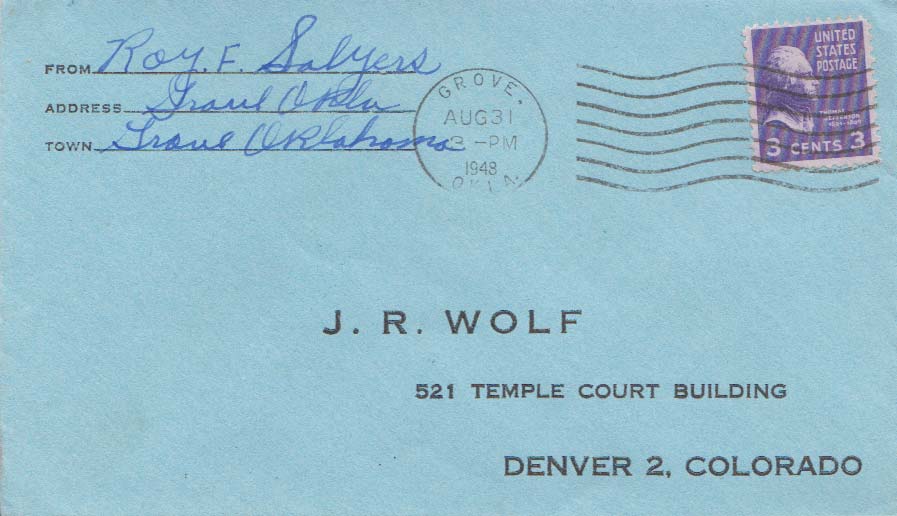 FROM Roy. F. Salyers
ADDRESS Grove Okla
TOWN Grove Oklahoma
GROVE,
AUG 31
3 -PM
1948
OKLA.
UNITED
STATES
POSTAGE
THOMAS
JEFFERSON
3 CENTS 3
J. R. WOLF
521 TEMPLE COURT BUILDING
DENVER 2, COLORADO